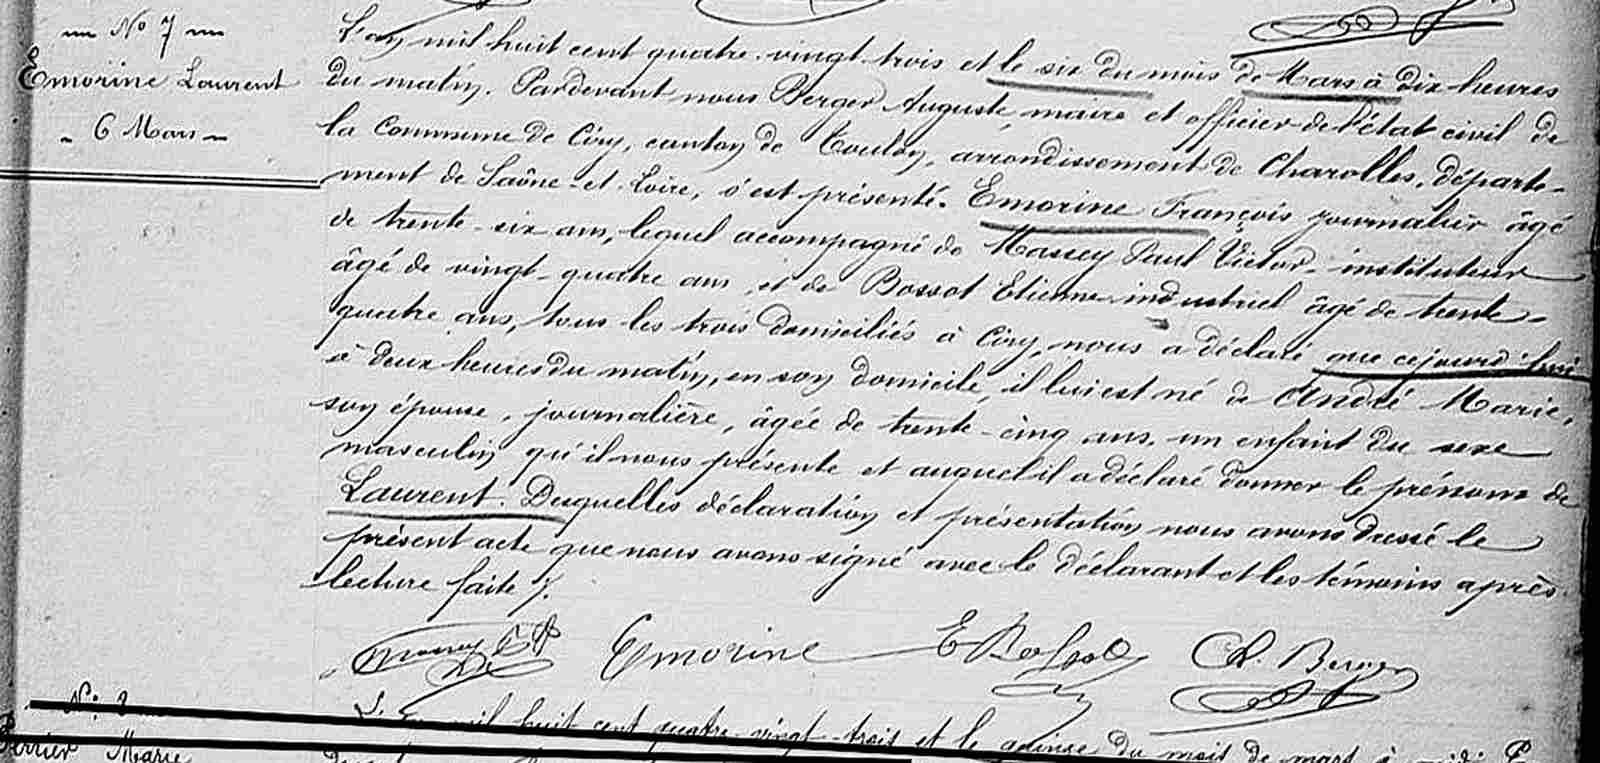 N° 7
Emorine Laurent
6 Mars
L'an mil huit cent quatre-vingt-trois et le six du mois de Mars à dix heures
du matin. Pardevant nous Berger Auguste, maire et officier de l'état civil de
la commune de Ciry, canton de Toulon, arrondissement de Charolles, départe-
ment de Saône-et-Loire, s'est présenté. Emorine François journalier âgé
de trente-six ans, lequel accompagné de Massey Paul Victor, instituteur
âgé de vingt-quatre ans, et de Bossot Etienne industriel âgé de trente-
quatre ans, tous les trois domiciliés à Ciry, nous a déclaré que cejourd'hui
à deux heures du matin, en son domicile, il lui est né de André Marie,
son épouse, journalière, âgée de trente-cinq ans, un enfant du sexe
masculin qu'il nous présente et auquel il a déclaré donner le prénom de
Laurent. Desquelles déclaration et présentation nous avons dressé le
présent acte que nous avons signé avec le déclarant et les témoins après
lecture faite.
Massey Emorine E Bossot A. Berger
N° 8 L'an mil huit cent quatre-vingt-trois et le quinze du mois de mars à midi
Perrier Marie